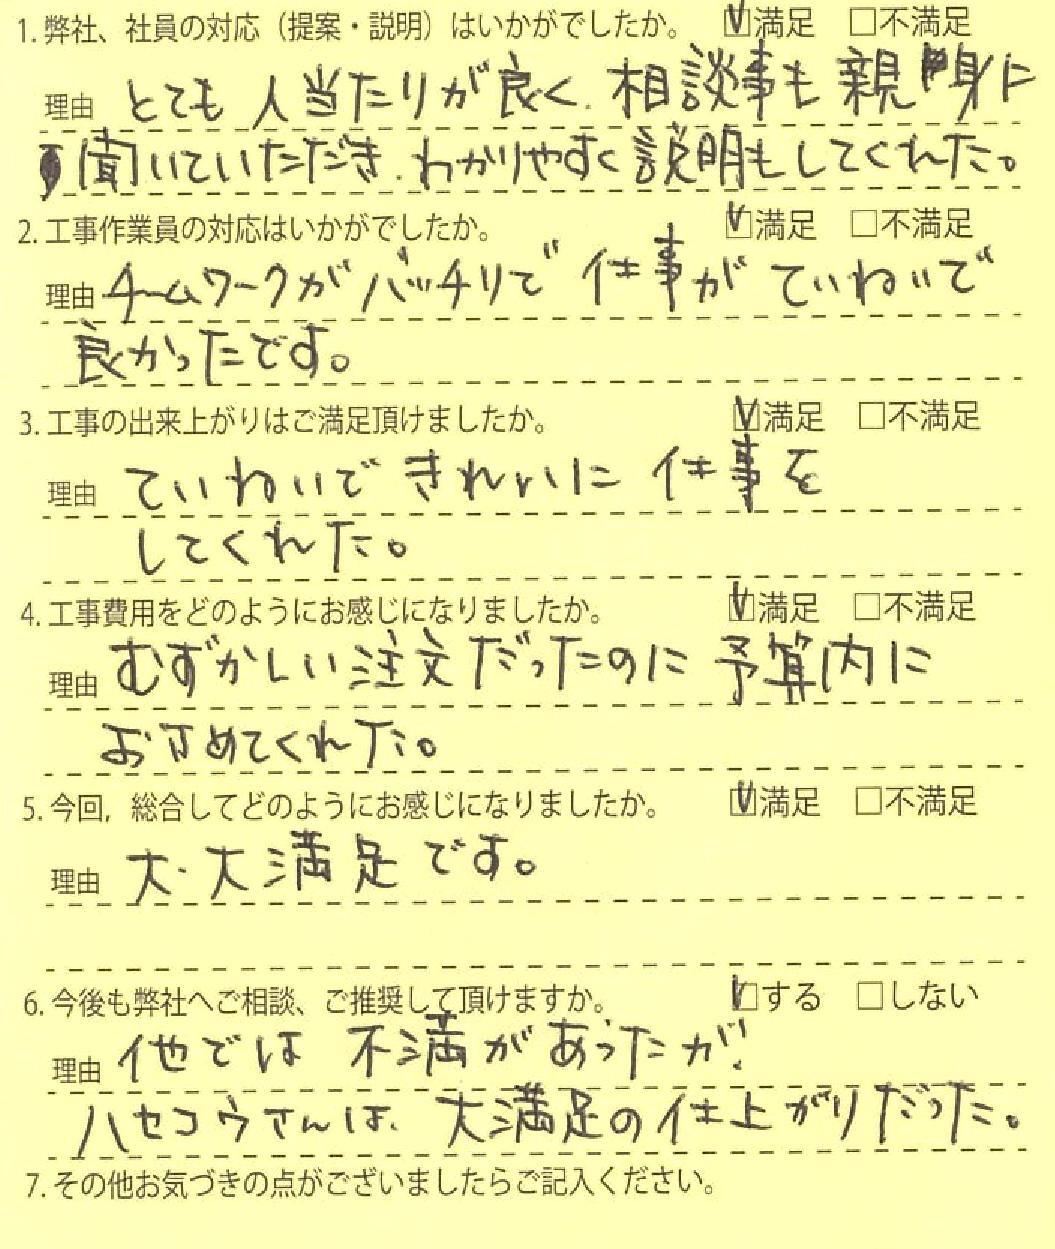 1. 弊社、社員の対応（提案・説明）はいかがでしたか。 ☑満足 □不満足
理由 とても 人当たりが良く、相談事も 親身に
聞いていただき、わかりやすく説明もしてくれた。
2. 工事作業員の対応はいかがでしたか。 ☑満足 □不満足
理由 チームワークが バッチリで 仕事が ていねいで
良かったです。
3. 工事の出来上がりはご満足頂けましたか。 ☑満足 □不満足
理由 ていねいで きれいに 仕事を
してくれた。
4. 工事費用をどのようにお感じになりましたか。 ☑満足 □不満足
理由 むずかしい注文だったのに 予算内に
おさめてくれた。
5. 今回，総合してどのようにお感じになりましたか。 ☑満足 □不満足
理由 大・大満足です。
6. 今後も弊社へご相談、ご推奨して頂けますか。 ☑する □しない
理由 他では 不満があったが、
ハセコウさんは、大満足の仕上がりだった。
7. その他お気づきの点がございましたらご記入ください。